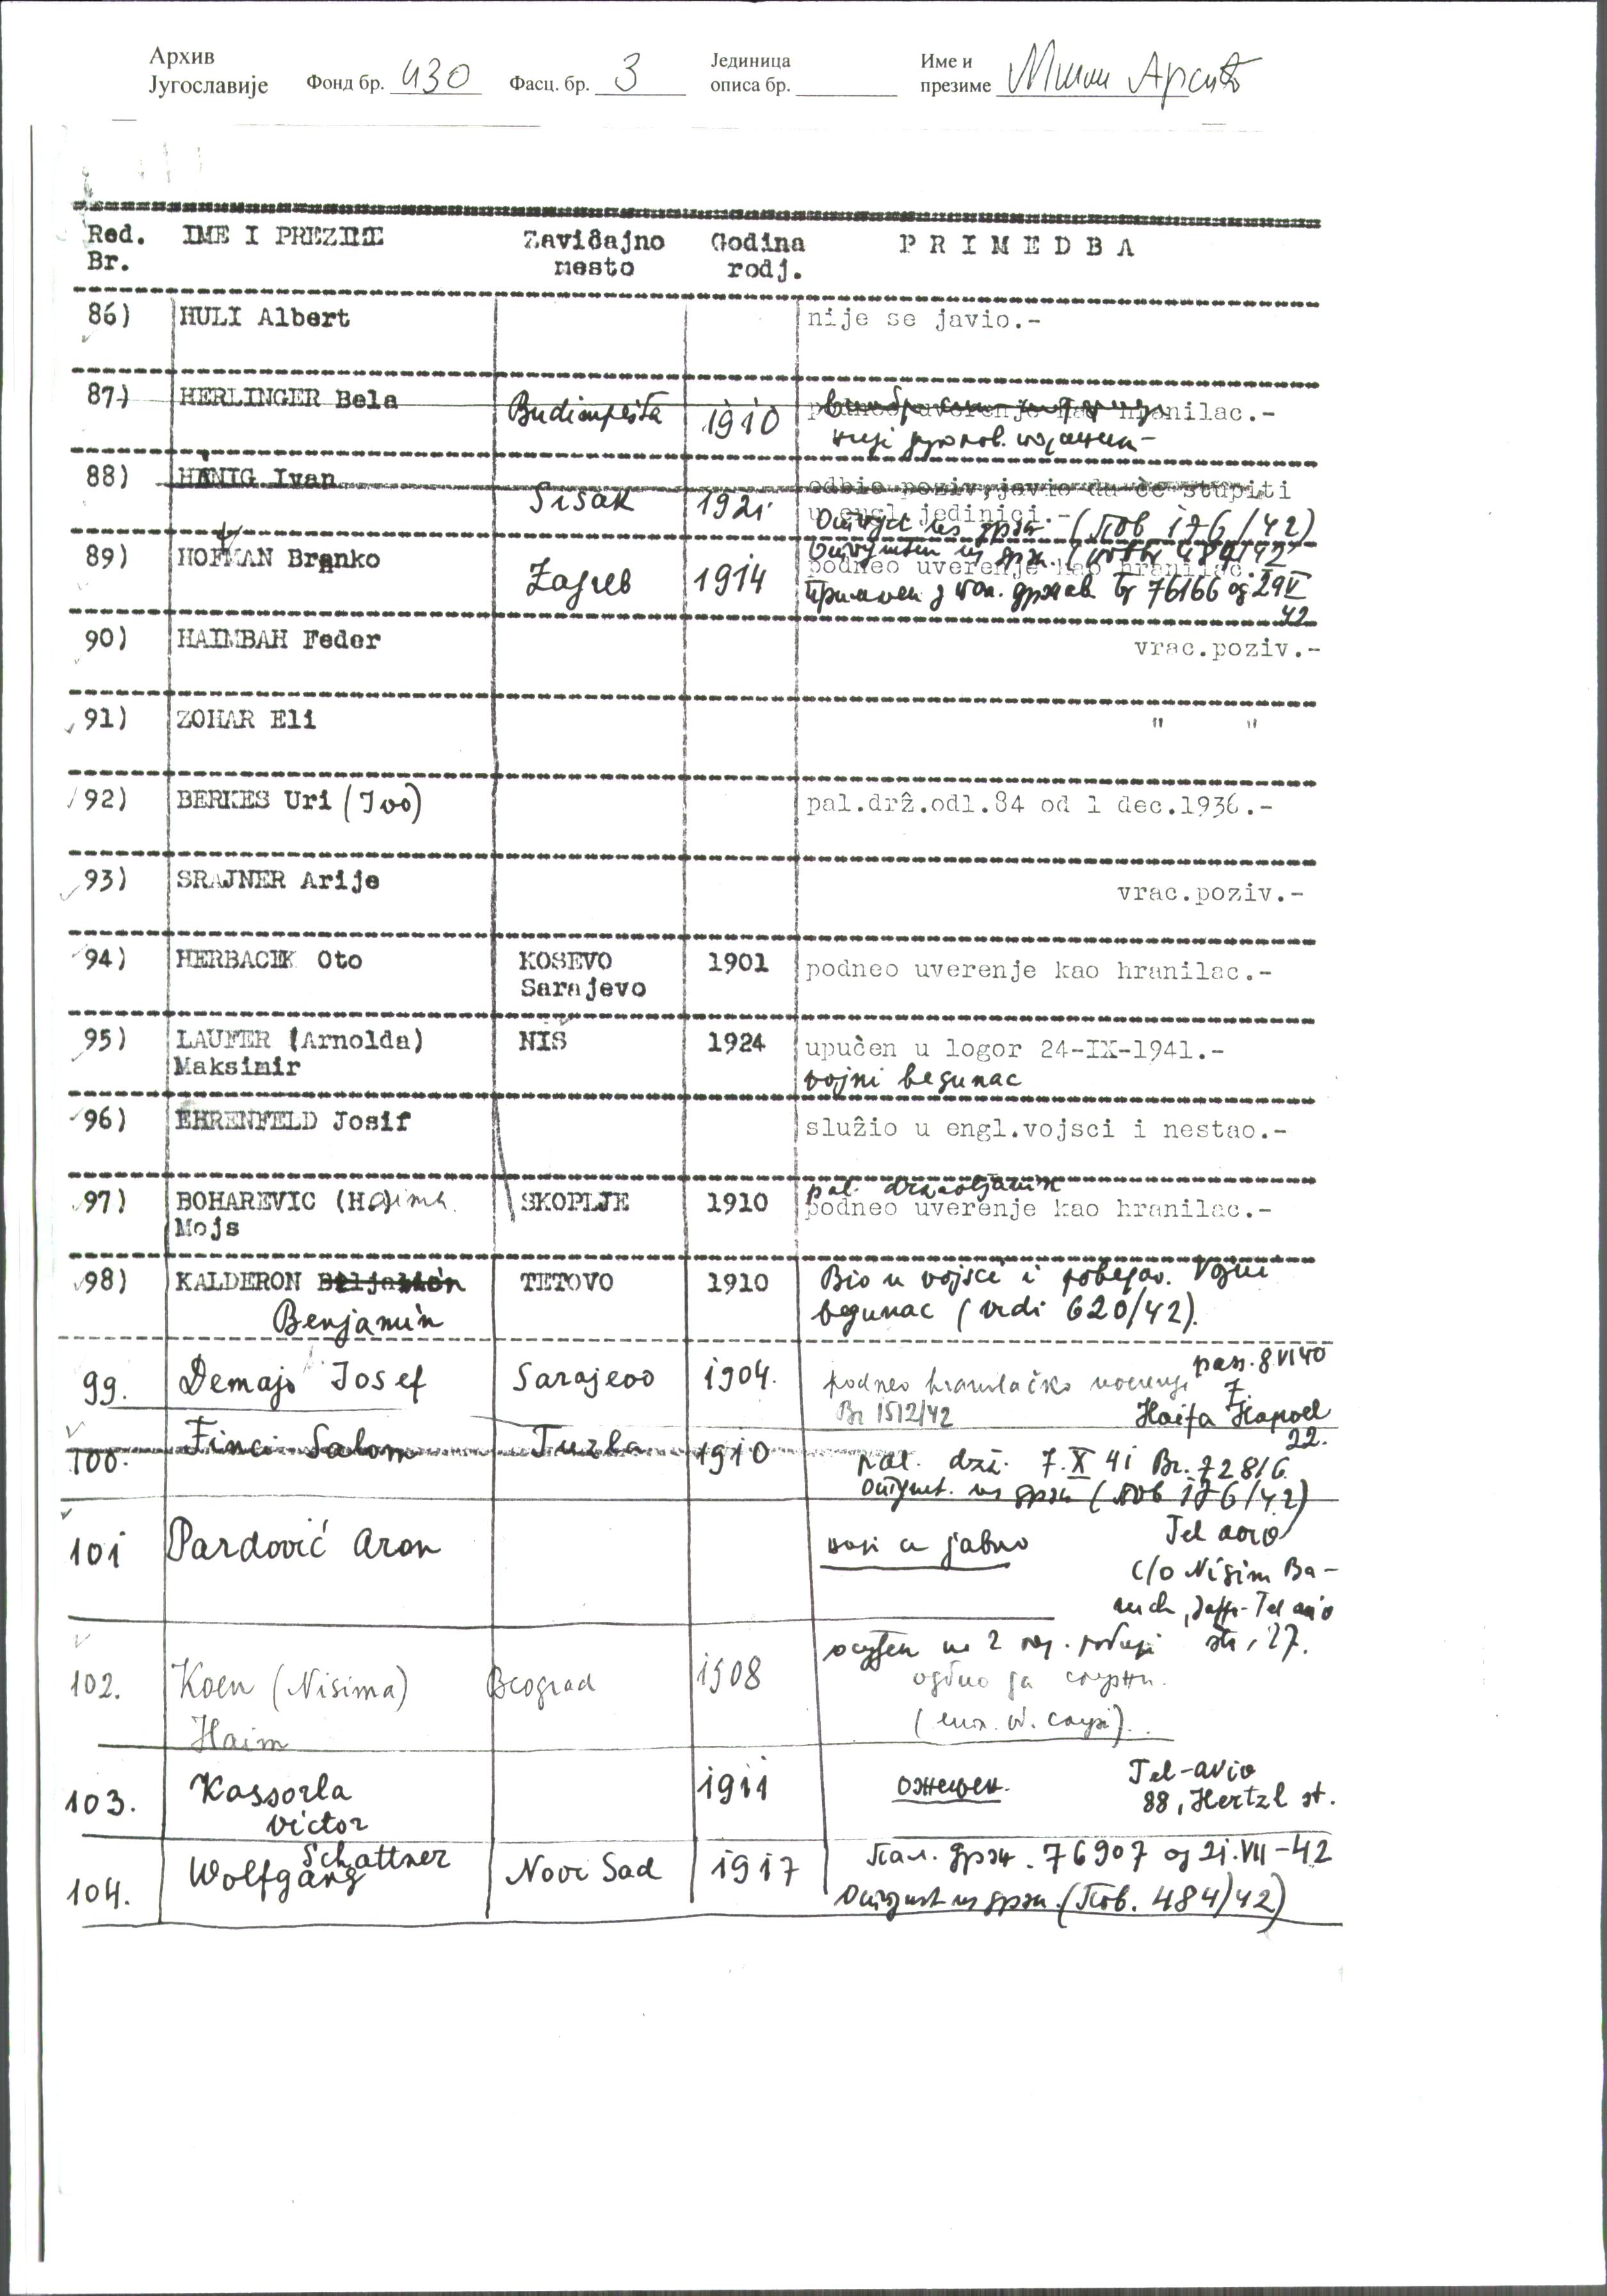 Архив
Југославије
Фонд бр. 430
Фасц. бр. 3
Јединица
описа бр.
Име и
презиме
Red.
Br.
IME I PREZIME
Zavičajno
mesto
Godina
rodj.
P R I M E D B A
86) HULI Albert nije se javio.-
87) HERLINGER Bela Budimpešta 1910 podneo uverenje kao hranilac.-
88) HENIG Ivan Sisak 1921 odbio poziv, javio da će stupiti
u engl jedinici.-
(Пов 176/42)
89) HOFMAN Branko Zagreb 1914 podneo uverenje kao hranilac.-
76166 од 29 V
42
90) HAIMBAH Feder vrac.poziv.-
91) ZOHAR Eli " "
92) BERKES Uri (Ivo) pal.drž.odl.84 od 1 dec.1936.-
93) SRAJNER Arije vrac.poziv.-
94) HERBACIK Oto KOSEVO 1901 podneo uverenje kao hranilac.-
Sarajevo
95) LAUFER (Arnolda) NIŠ 1924 upućen u logor 24-IX-1941.-
Maksimir vojni begunac
96) EHRENFELD Josif služio u engl.vojsci i nestao.-
pal. državljanin
97) BOHAREVIC (Hajima SKOPLJE 1910 podneo uverenje kao hranilac.-
Mojs
98) KALDERON TETOVO 1910 Bio u vojsci i pobegao. Vojni
Benjamin begunac (vidi 620/42).
pass. 8 VI 40
99. Demajo Josef Sarajevo 1904. podneo hranilačko uverenje 7.
Br 1512/42 Haifa Hapoel
22.
100. Finci Salom Tuzla 1910 pal. drž. 7. X 41 Br. 72816
(Пов 176/42)
101 Pardović Aron Tel aviv
c/o Nisim Ba-
ruch, Jaffa-Tel aviv
str, 27.
102. Koen (Nisima) Beograd 1908
Haim
103. Kassorla 1911 ожењен. Tel-aviv
Victor 88, Hertzl st.
104. Wolfgang Schattner Novi Sad 1917 Пал. држ. 76907 од 21. VII-42
Отпуст из држ. (Пов. 484/42)